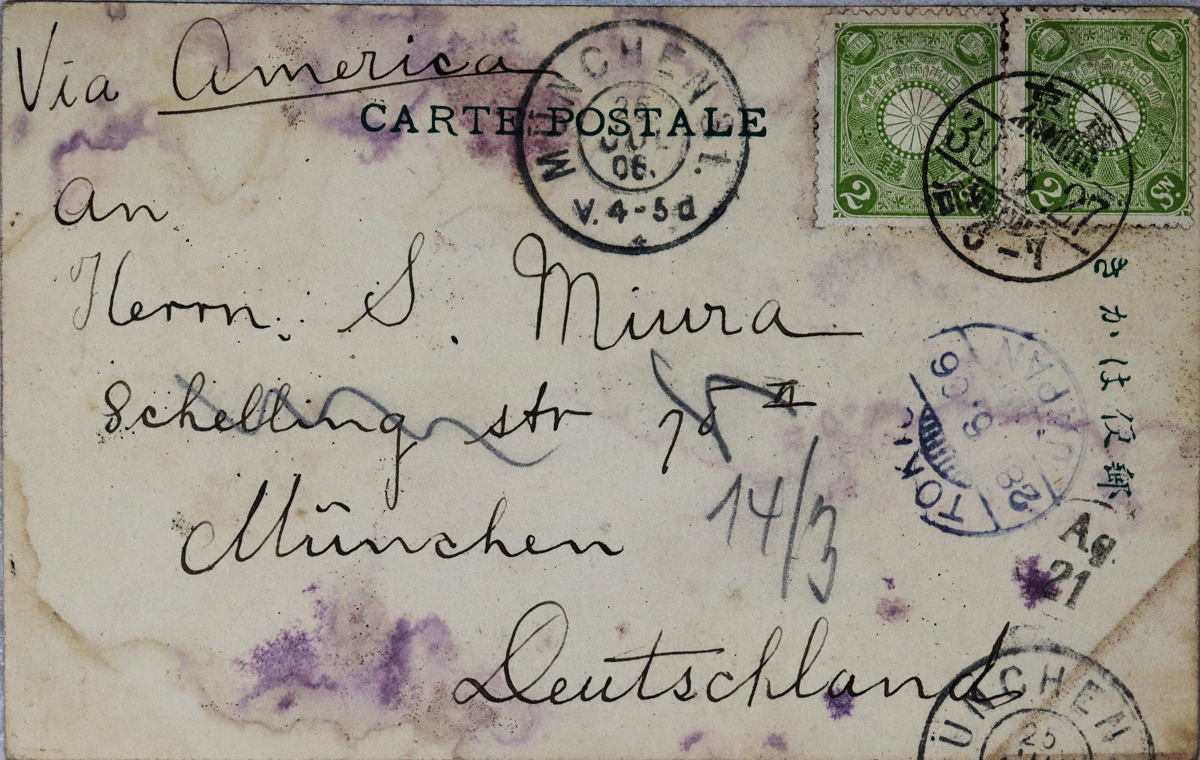 Via America
CARTE POSTALE
MÜNCHEN 1.
JUL
06.
V. 4-5d
2
2
39
27
6-7
きかは便郵
An
Herrn. S. Miura
Schelling str 75 II
14/3
München
Deutschland
TOKIO
JAPAN
28
6
06
Ag.
21
MÜNCHEN
25